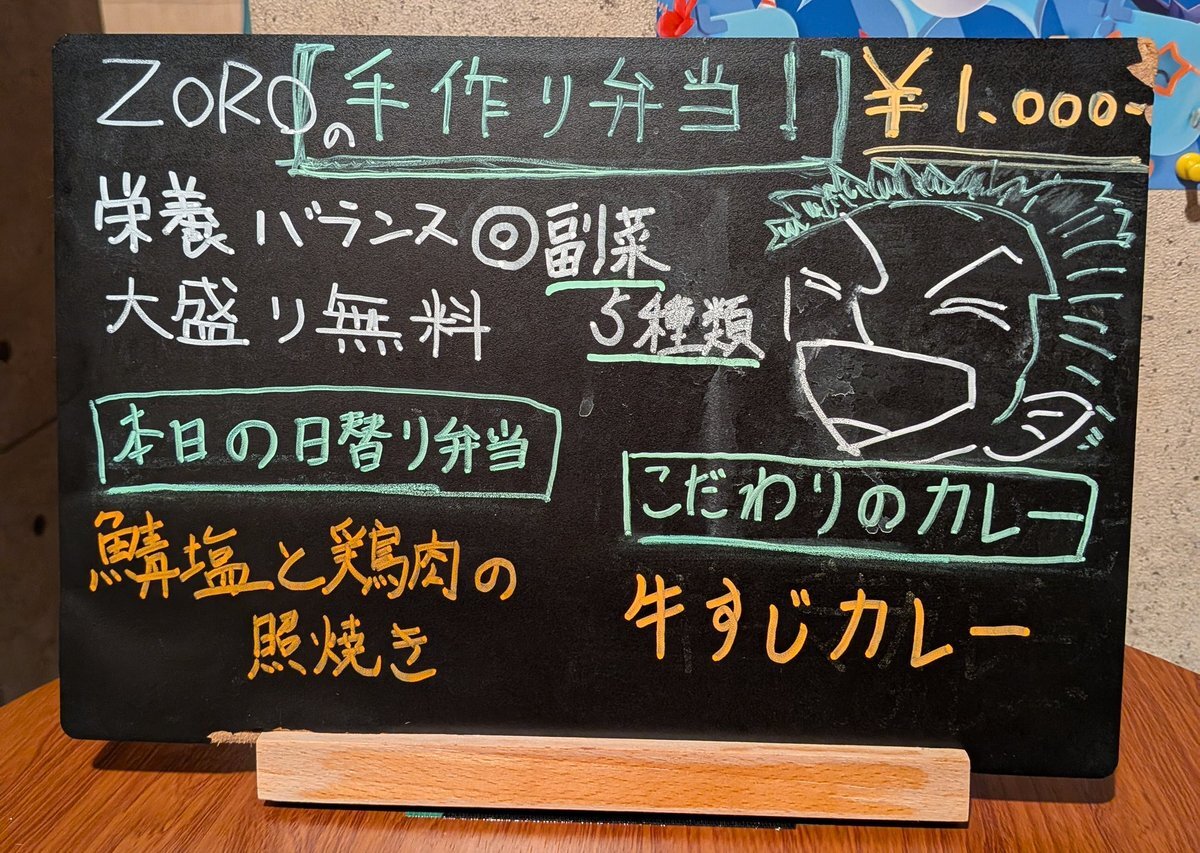 ZOROの手作り弁当！ ¥1.000-
栄養バランス◎副菜
大盛り無料 5種類
本日の日替り弁当
鯖塩と鶏肉の
照焼き
こだわりのカレー
牛すじカレー